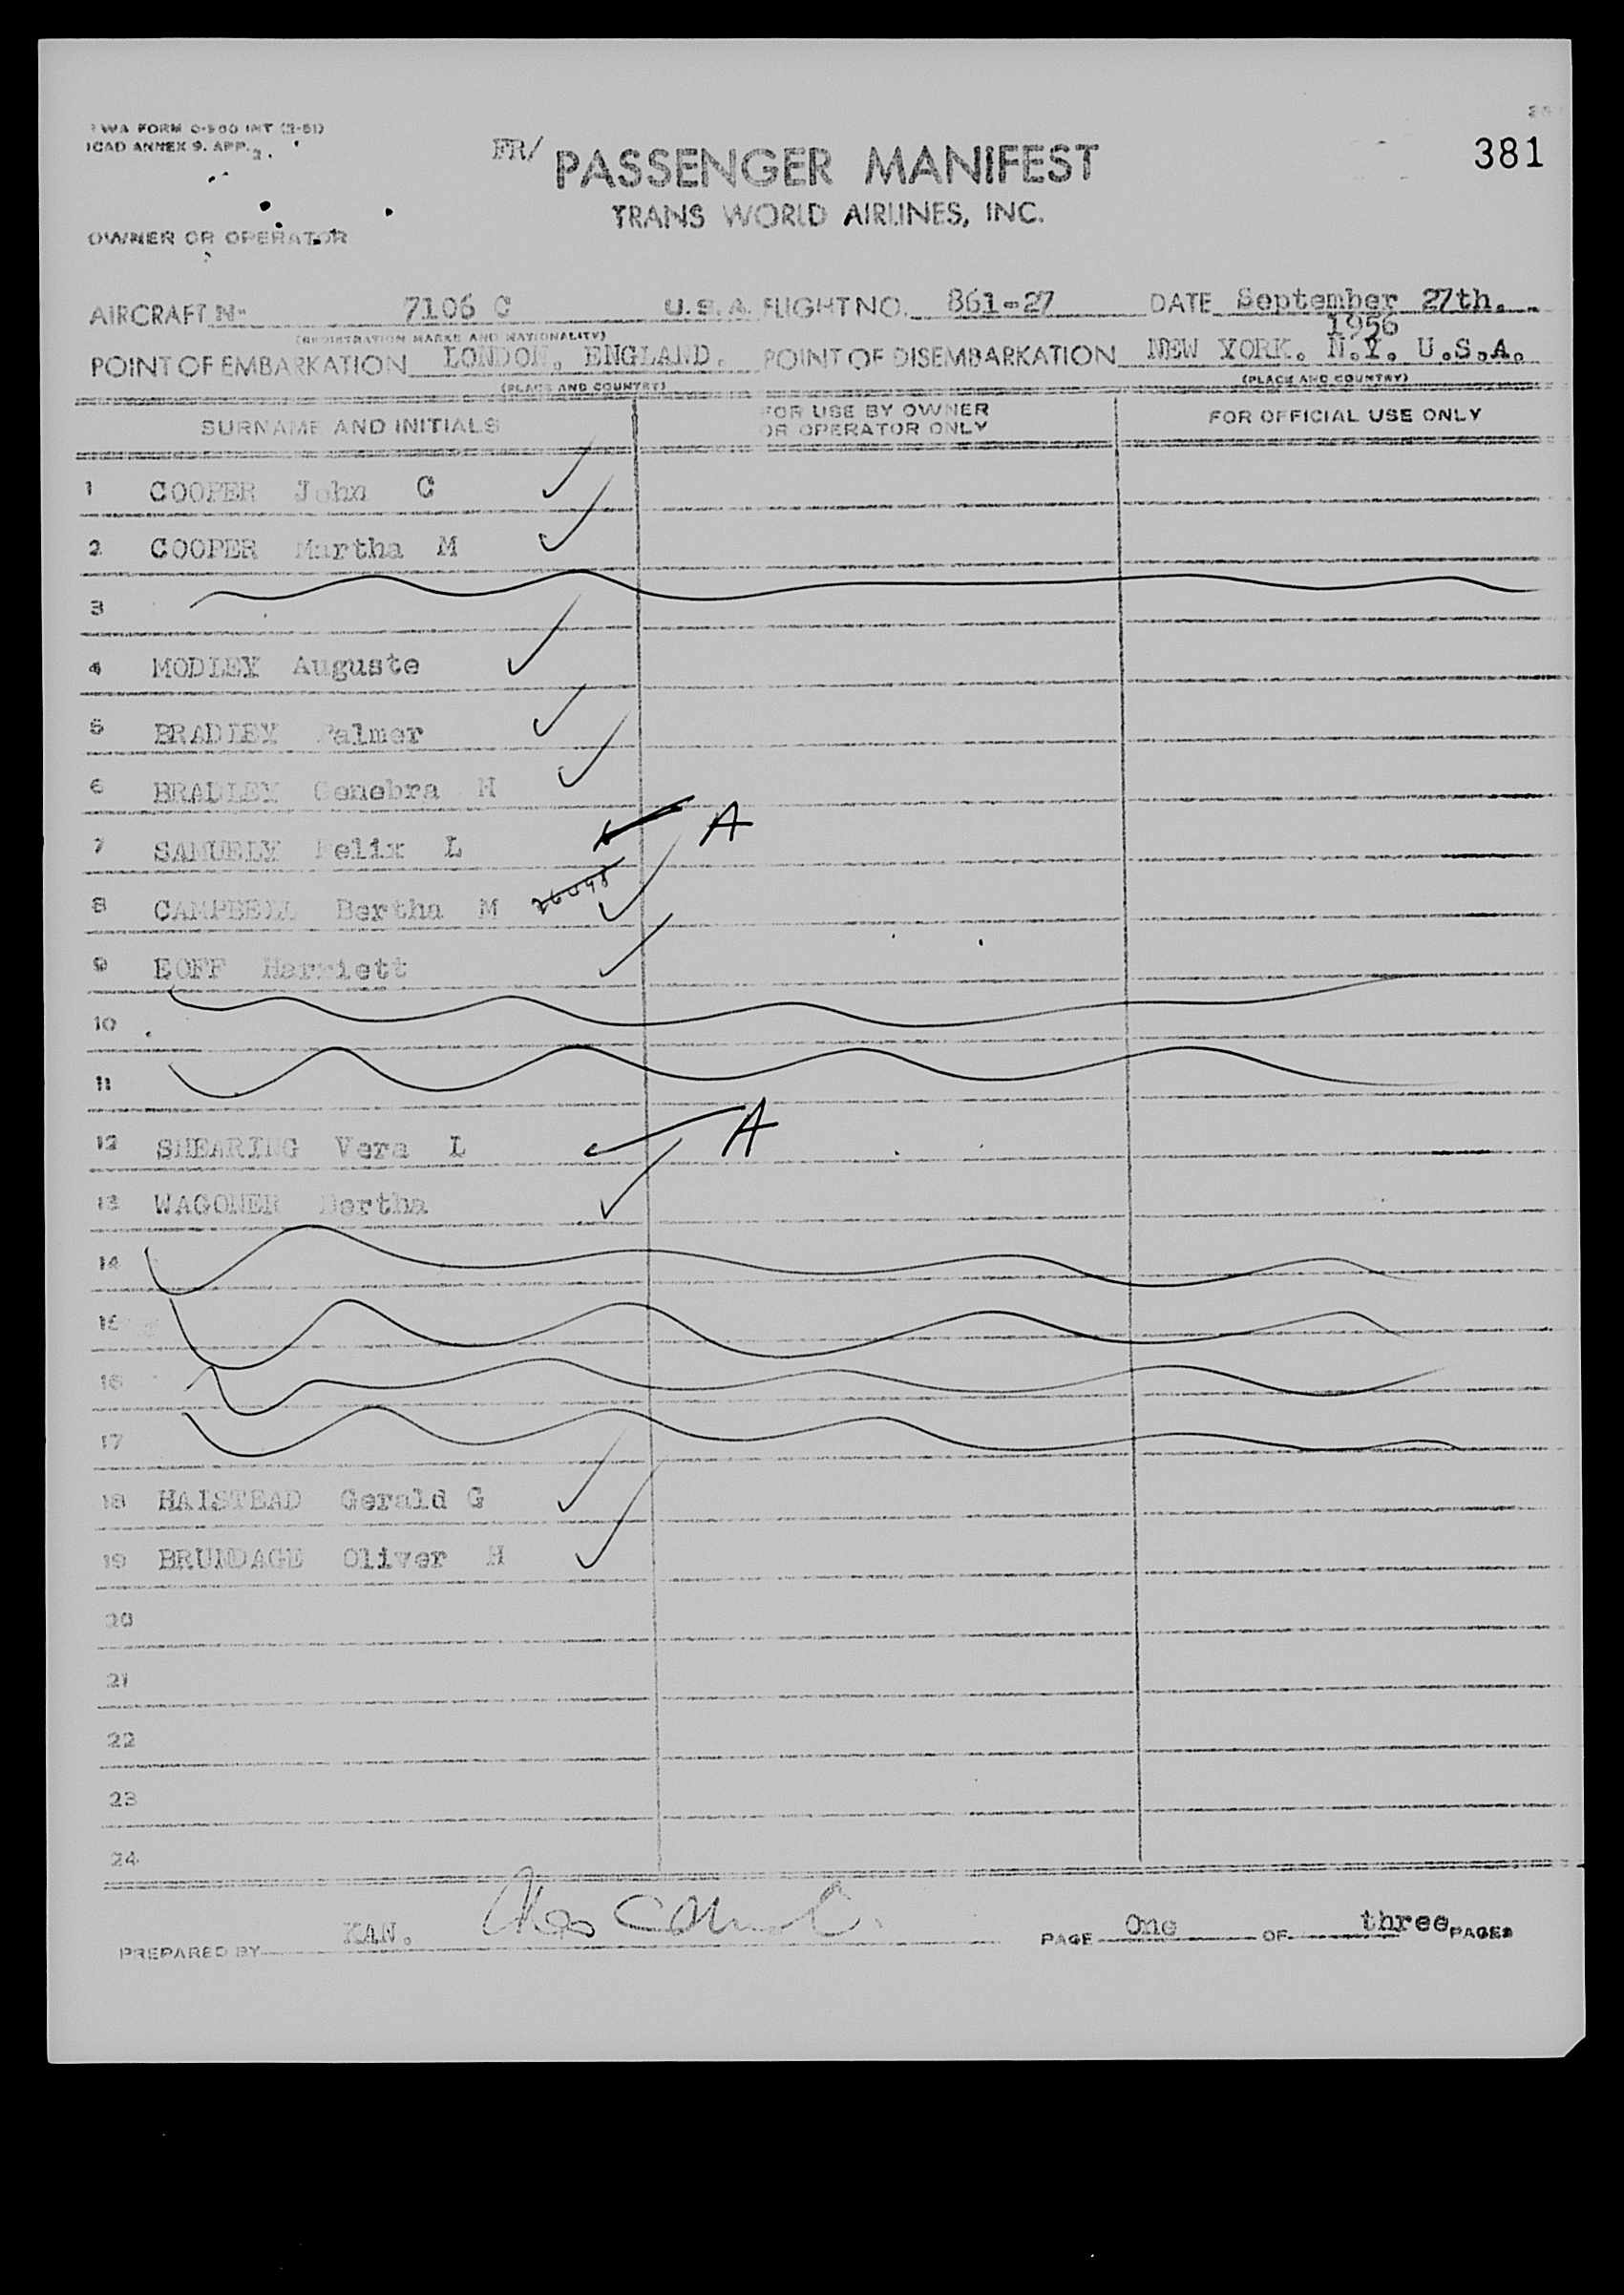 TWA FORM O-500 INT (2-51)
ICAO ANNEX 9. APP. 2.
381
FR/ PASSENGER MANIFEST
TRANS WORLD AIRLINES, INC.
OWNER OR OPERATOR
AIRCRAFT N- 7106 C U.S.A. FLIGHT NO. 861-27 DATE September 27th.
1956
(REGISTRATION MARKS AND NATIONALITY)
POINT OF EMBARKATION LONDON, ENGLAND. POINT OF DISEMBARKATION NEW YORK. N.Y. U.S.A.
(PLACE AND COUNTRY) (PLACE AND COUNTRY)
SURNAME AND INITIALS FOR USE BY OWNER OR OPERATOR ONLY FOR OFFICIAL USE ONLY
1 COOPER John C
2 COOPER Martha M
3
4 MODLEY Auguste
5 BRADLEY Palmer
6 BRADLEY Genebra H
7 SAMUELY Felix L A
8 CAMPBELL Bertha M
9 EOFF Harriett
10
11
12 SHEARING Vera L A
13 WAGONER Bertha
14
15
16
17
18 HAISTEAD Gerald G
19 BRUNDAGE Oliver H
20
21
22
23
24
PREPARED BY KAN. PAGE One OF three PAGES